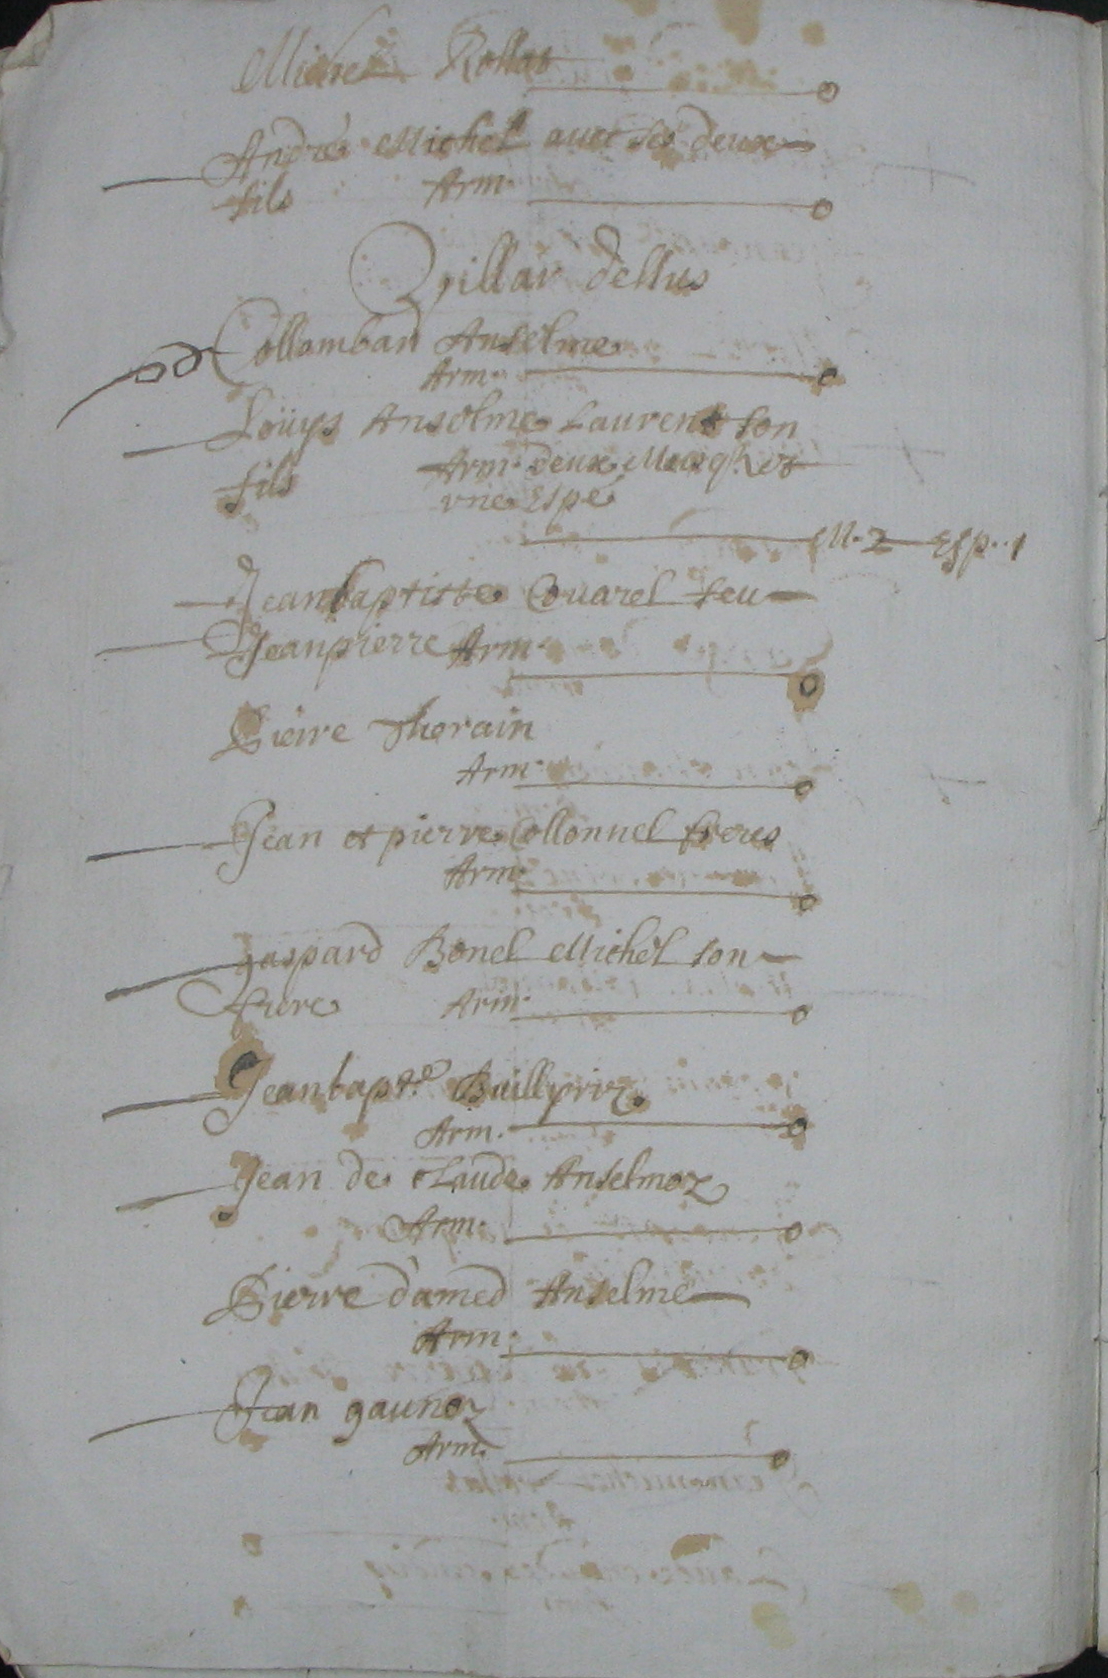 Michel Rollat o
André Michel avec ses deux
fils Arm. o
Villar dessus
od Collomban Anselme
Arm. o
Loüys Anselme Laurent son
fils Arm. deux Mosqhet
vne Espé
M. 2 Esp. 1
Jeanbaptiste Couarel feu
Jeanpierre Arm. o
Pierre Thorain
Arm. o
Jean et pierre Collonnel freres
Arm. o
gaspard Bonel Michel son
frere Arm. o
Jeanbapt.e
Arm. o
Jean de Claude Anselmoz
Arm. o
Pierre d'amed Anselme
Arm. o
Jean gaunoz
Arm. o